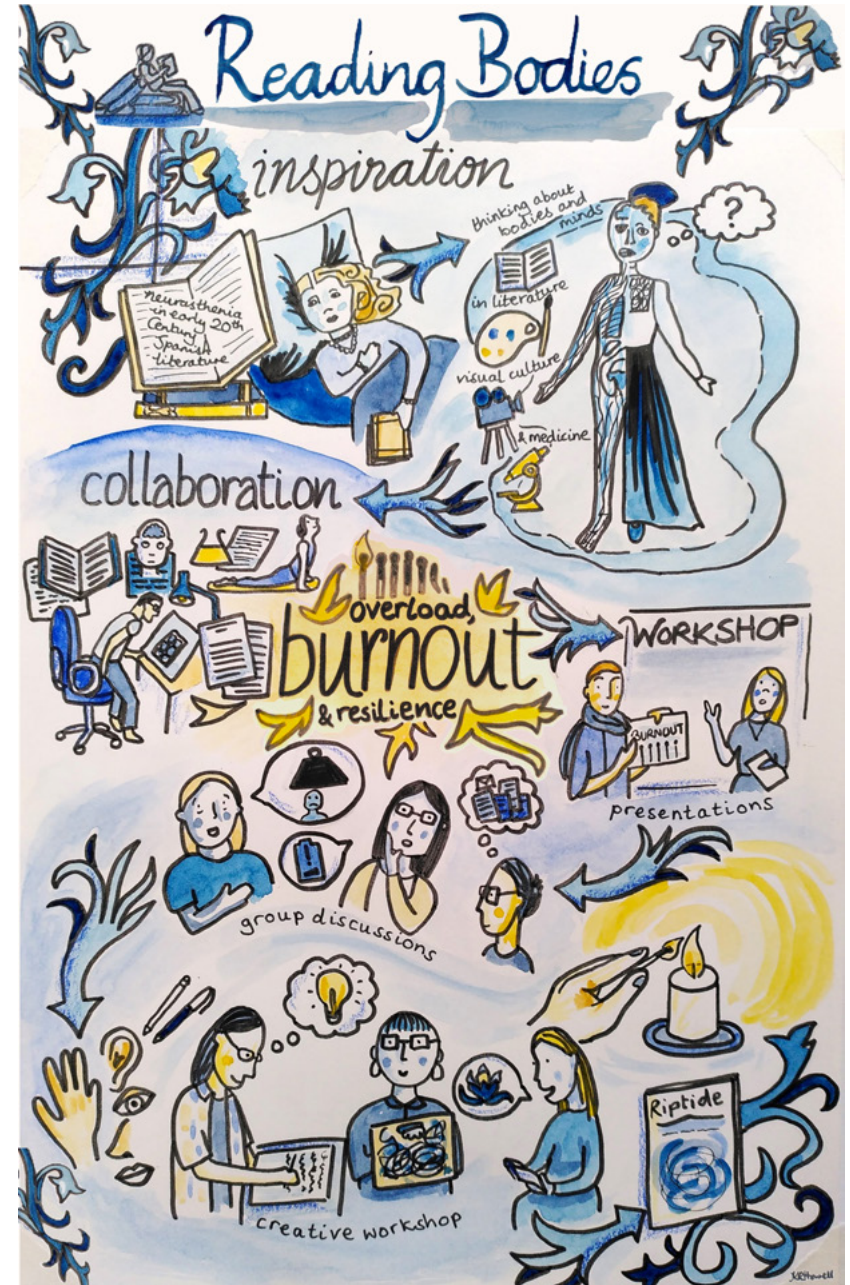 Reading Bodies
inspiration
neurasthenia
in early 20th
Century
Spanish
literature
thinking about
bodies and
minds
?
in literature
visual culture
& medicine
collaboration
overload,
burnout
& resilience
WORKSHOP
BURNOUT
presentations
group discussions
creative workshop
Riptide